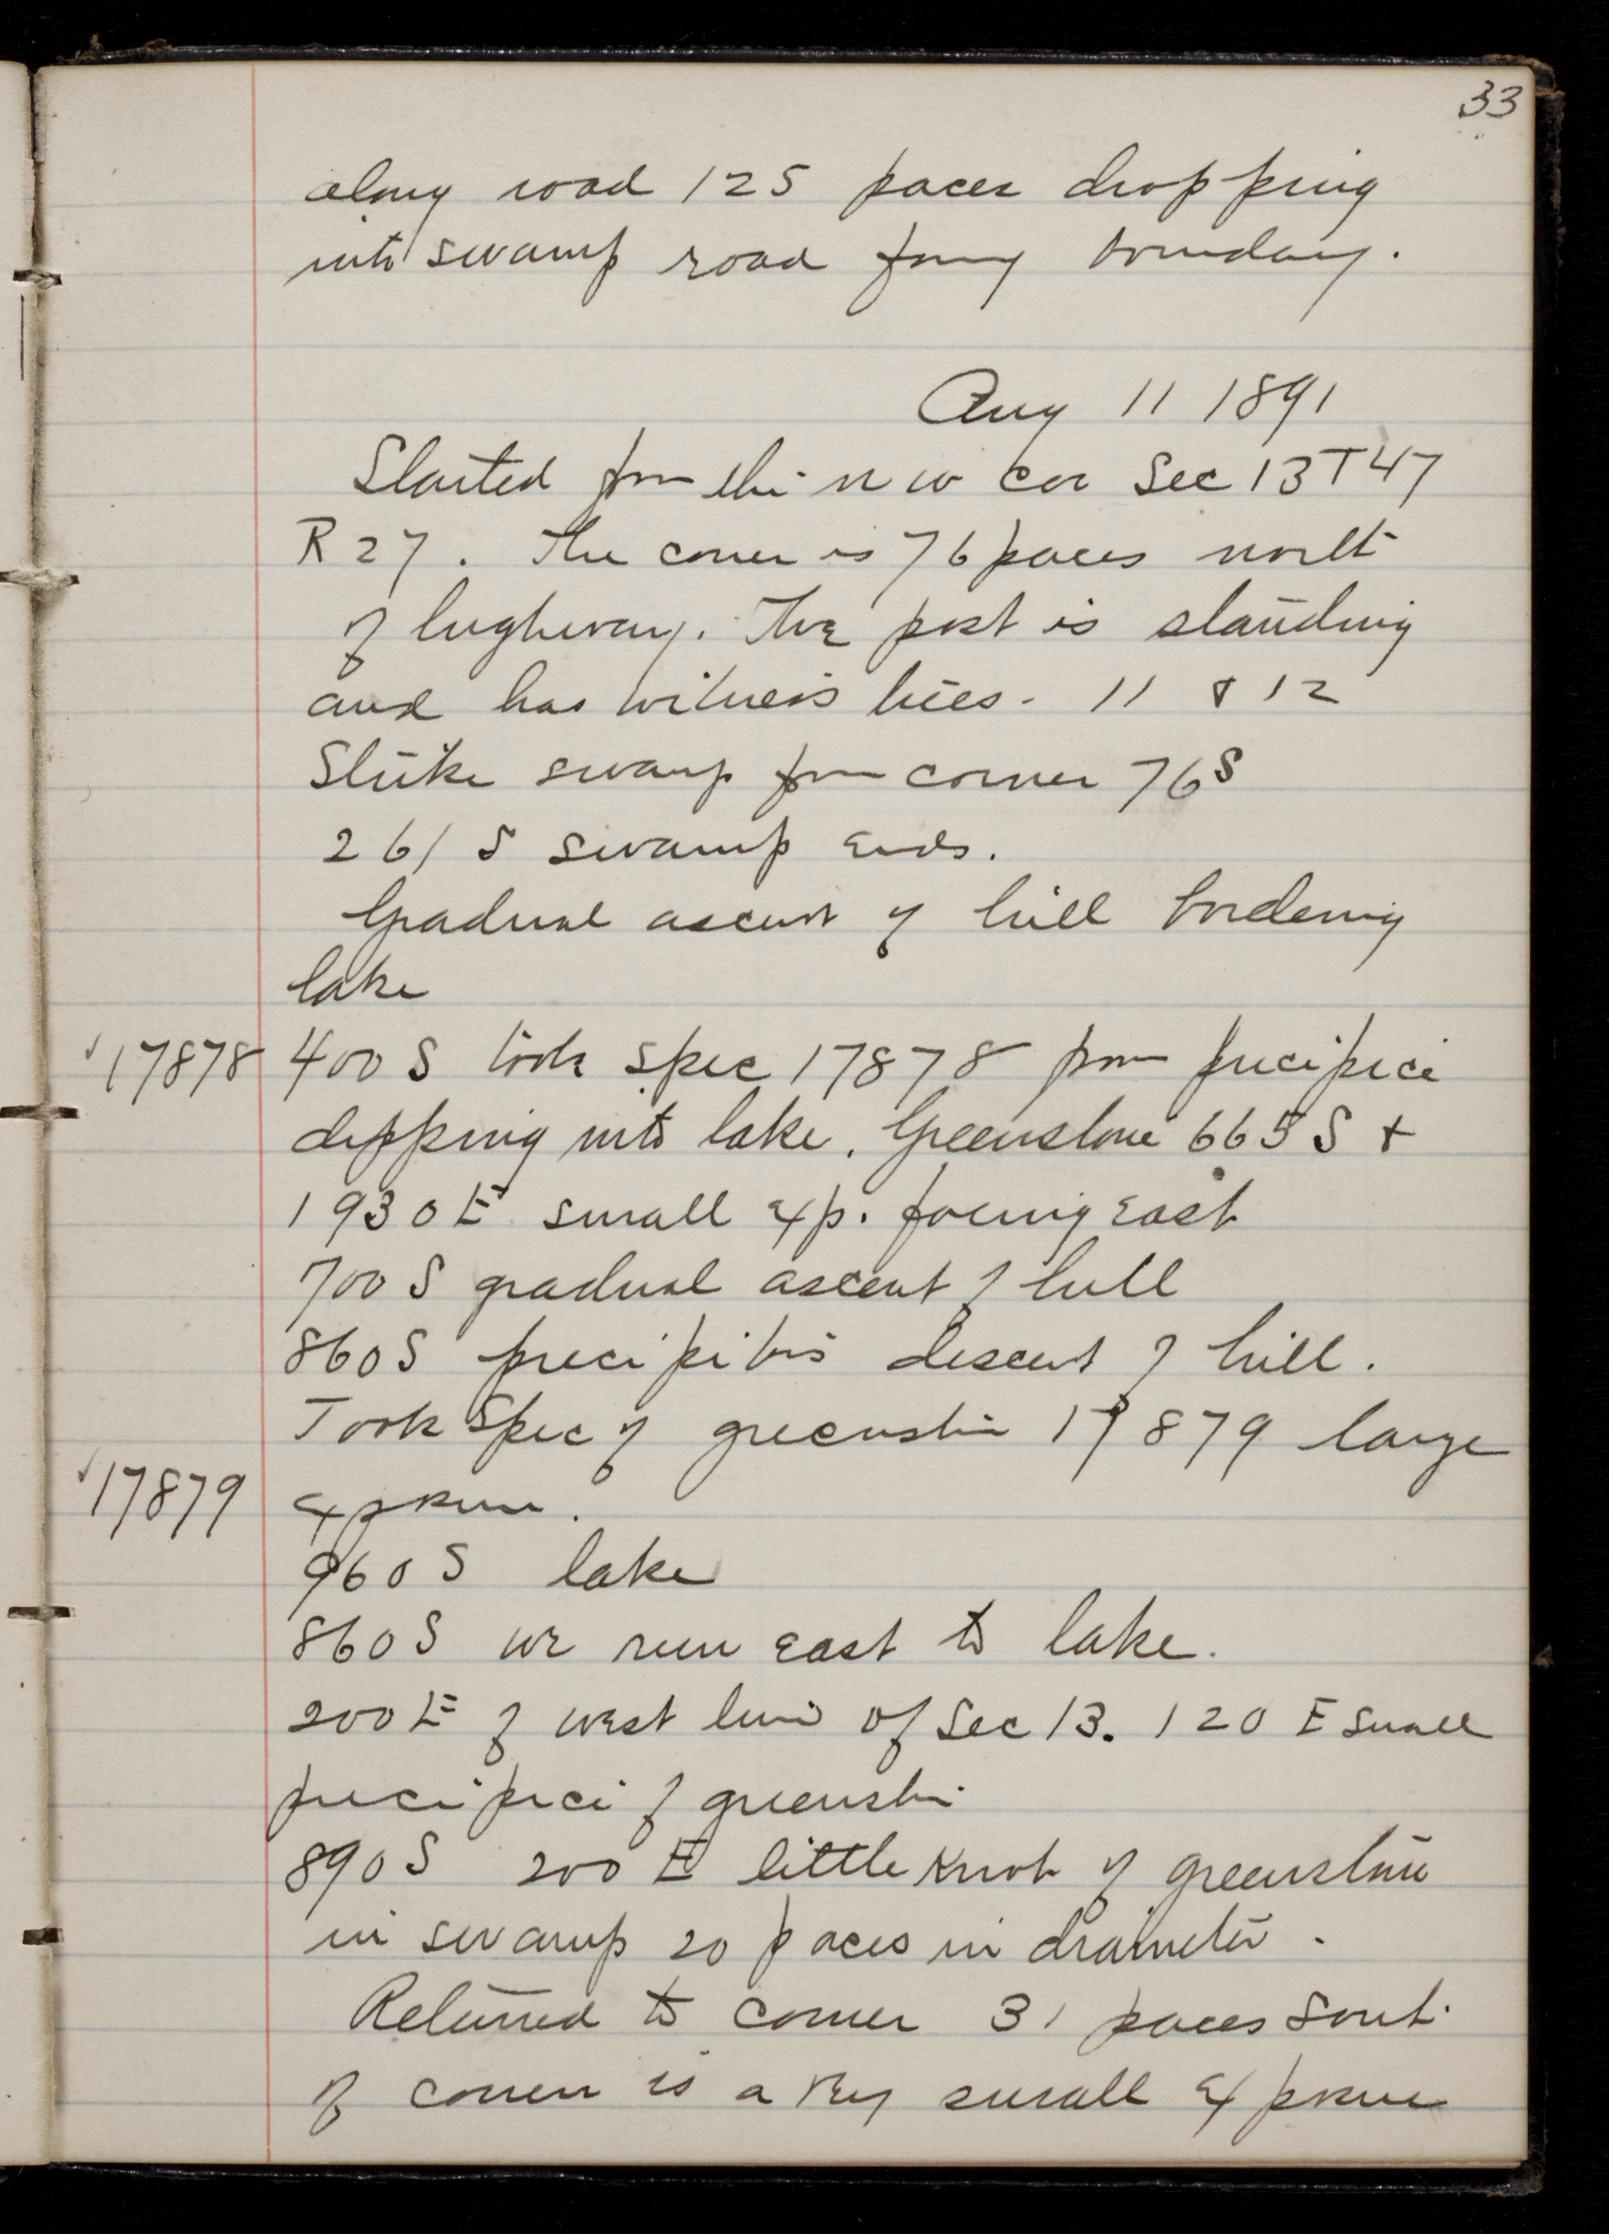 33
along road 125 paces dropping
into swamp road forming boundary.
Aug 11 1891
Started from the n w cor Sec 13 T 47
R 27. The corner is 76 paces north
of highway. The post is standing
and has witness trees. 11 & 12
Strike swamp from corner 76 S
261 S swamp ends.
Gradual ascent of hill bordering
lake
17878 400 S took spec 17878 from precipice
dipping into lake. Greenstone 665 S +
1930 E small exp. facing East
700 S gradual ascent of hill
860 S precipitous descent of hill.
Took Spec of greenstone 17879 large
17879 exposure.
960 S lake
860 S we run east to lake.
200 E of west line of Sec 13. 120 E small
precipice of greenstone
890 S 200 E little knob of greenstone
in swamp 20 paces in diameter.
Returned to corner 31 paces South
of corner is a very small exposure